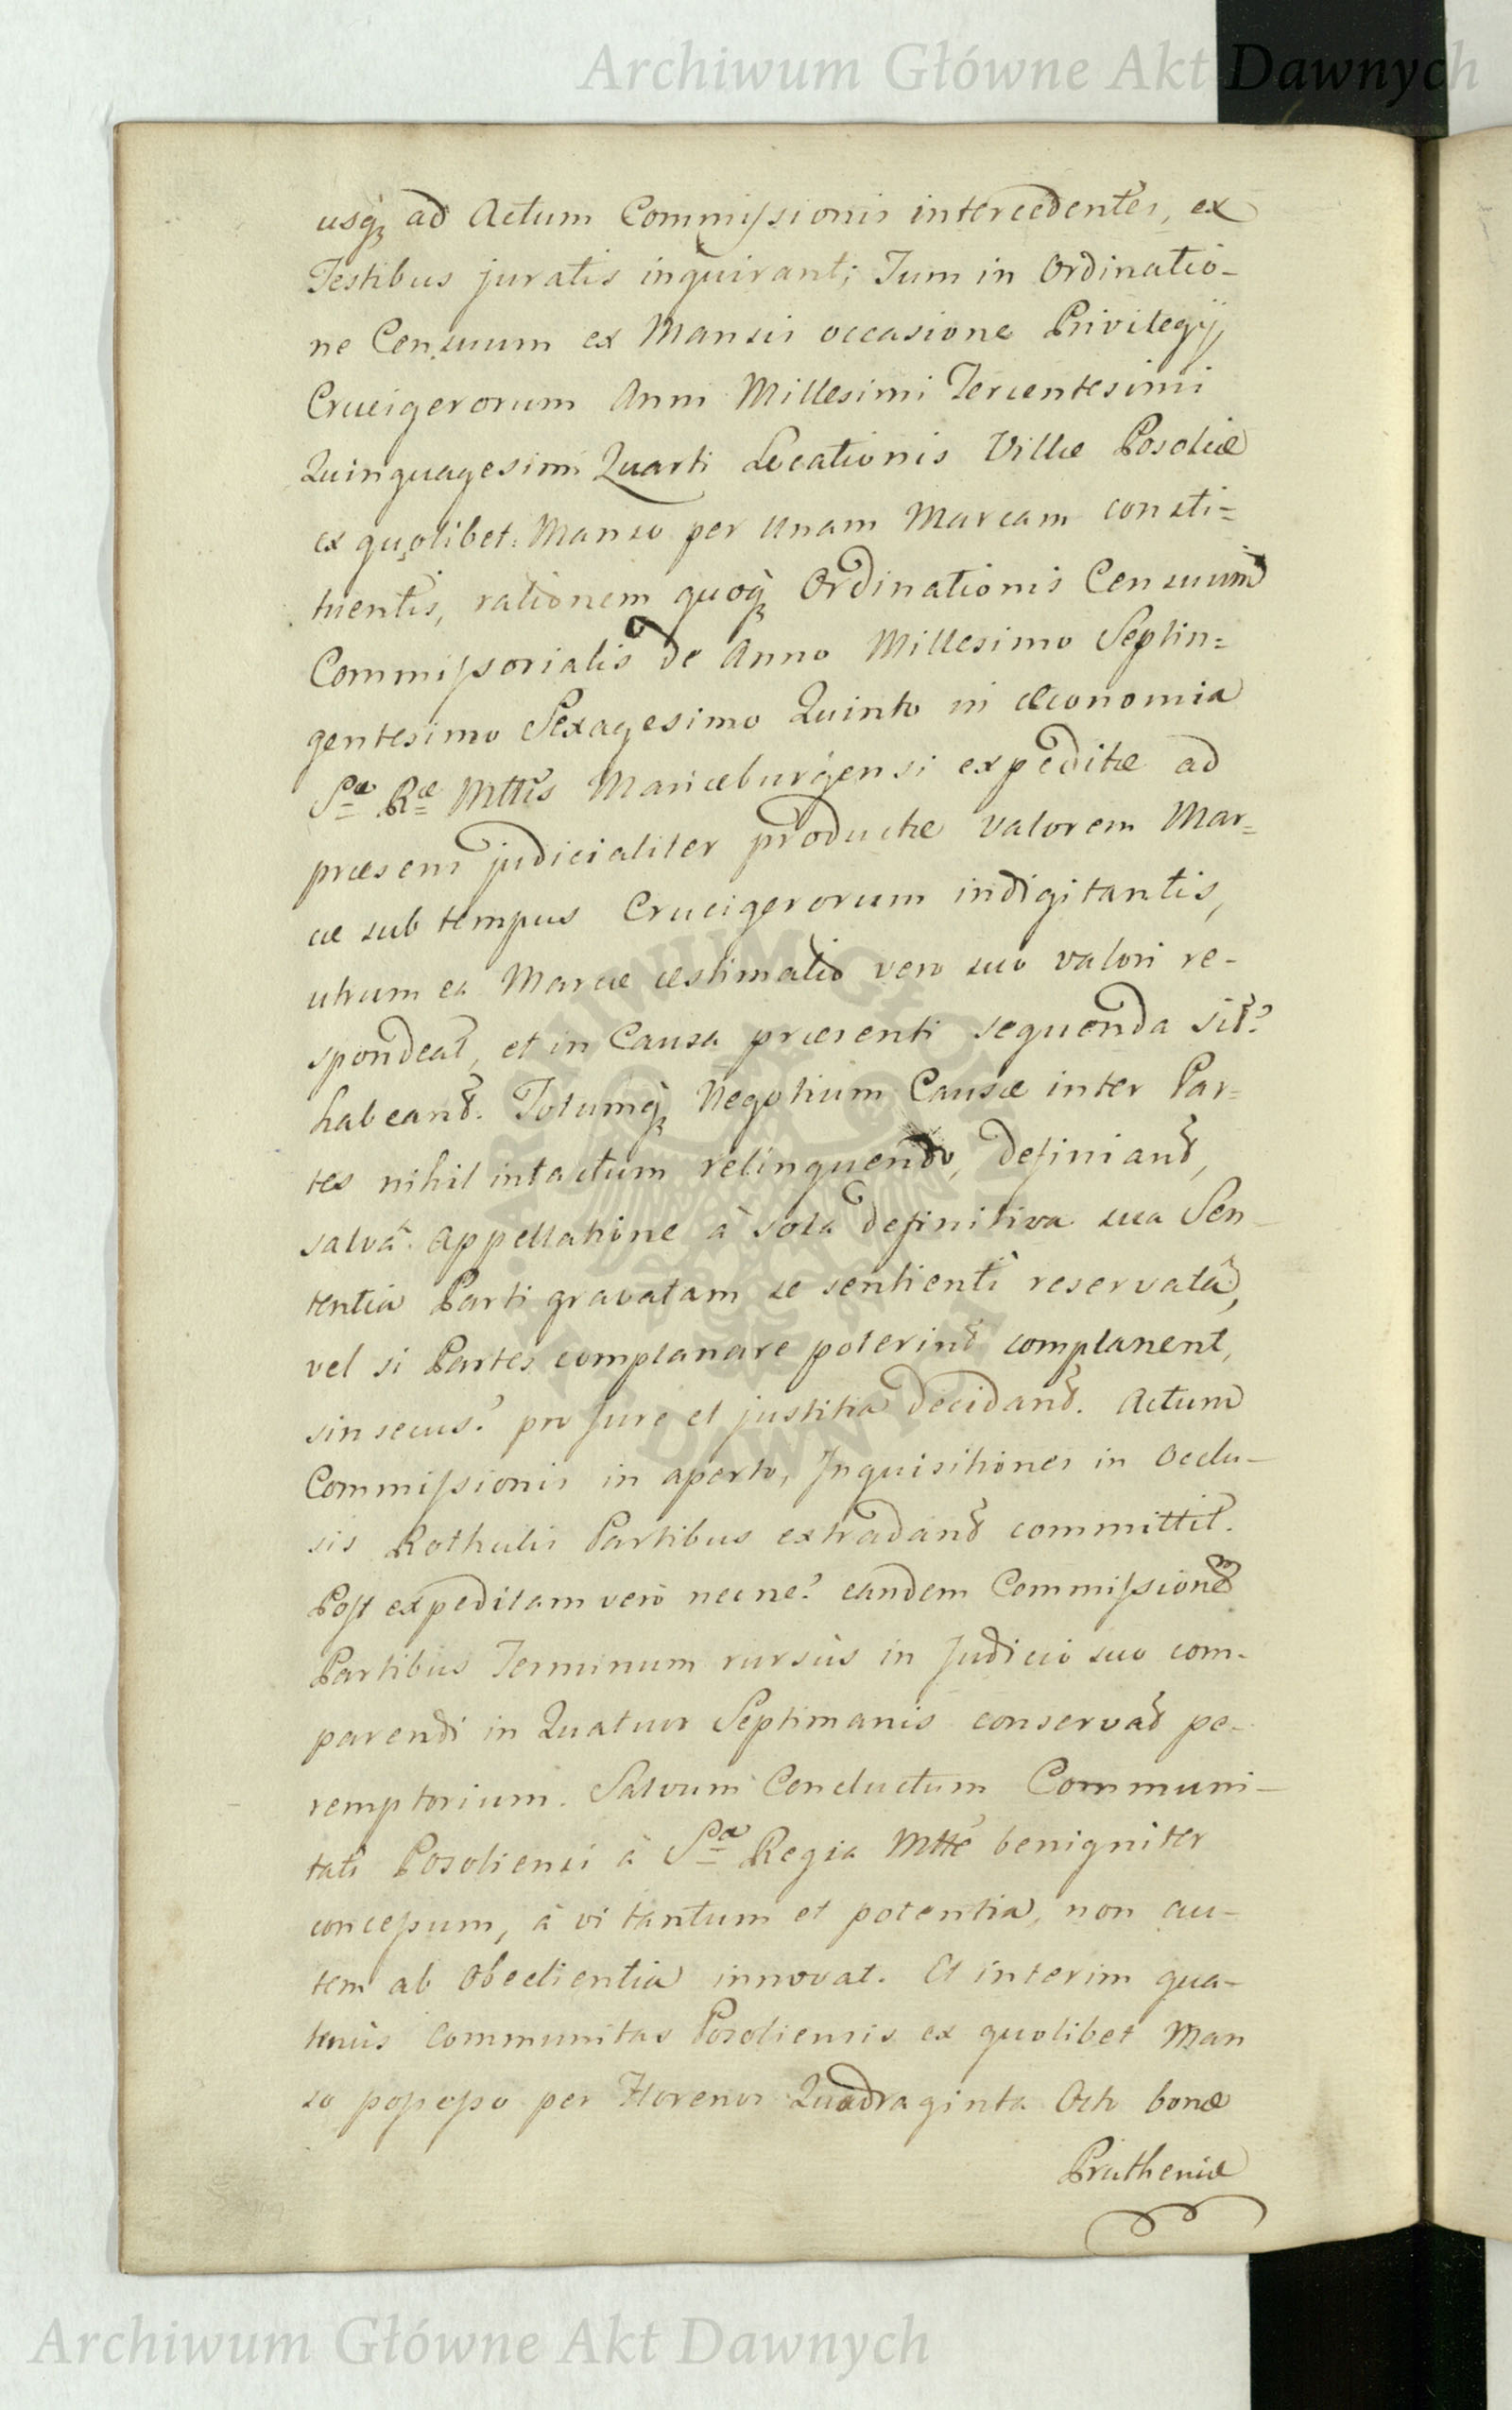 Archiwum Główne Akt Dawnych
usq̀ꝫ ad Actum Commissionis intercedentes, ex
Testibus juratis inquirant; Tum in Ordinatio-
ne Censuum ex Mansis occasione Privilegij
Crucigerorum Anni Millesimi Tercentesimi
Quinquagesimi Quarti Locationis Villæ Posoliæ
ex quolibet Manso per Unam Marcam consti=
tuentis, rationem quoq̀ꝫ Ordinationis Censuum
Commissorialis de Anno Millesimo Septin=
gentesimo Sexagesimo Quinto in Œconomia
Sæ Ræ Mttis Mariæburgensi expeditæ ad
præsens judicialiter productæ valorem Mar=
cæ sub tempus Crucigerorum indigitantis,
utrum ea Marcæ æstimatio vero suo valori re-
spondeat, et in Causa præsenti sequenda sit?
habeant. Totumq̀ꝫ Negotium Causæ inter Par=
tes nihil intactum relinquendo, definiant,
salvâ Appellatione à sola definitiva sua Sen-
tentia Parti gravatam se sentienti reservatâ,
vel si Partes complanare poterint complanent,
sin secus? pro Jure et justitia decidant. Actum
Commissionis in aperto, Inquisitiones in Occlu-
sis Rothulis Partibus extradant committit.
Post expeditam verò necne? eandem Commissionem
Partibus Terminum rursùs in Judicio suo com-
parendi in Quatuor Septimanis conservat pe-
remptorium. Salvum Conductum Communi-
tati Posoliensi à Sa Regia Mtte benigniter
concessum, à vi tantum et potentia, non au-
tem ab Obedientia innovat. Et interim qua-
tenùs Communitas Posoliensis ex quolibet Man
so possesso per Florenos Quadraginta Octo bonæ
Prutheniæ
ARCHIWUM GŁÓWNE AKT DAWNYCH
Archiwum Główne Akt Dawnych